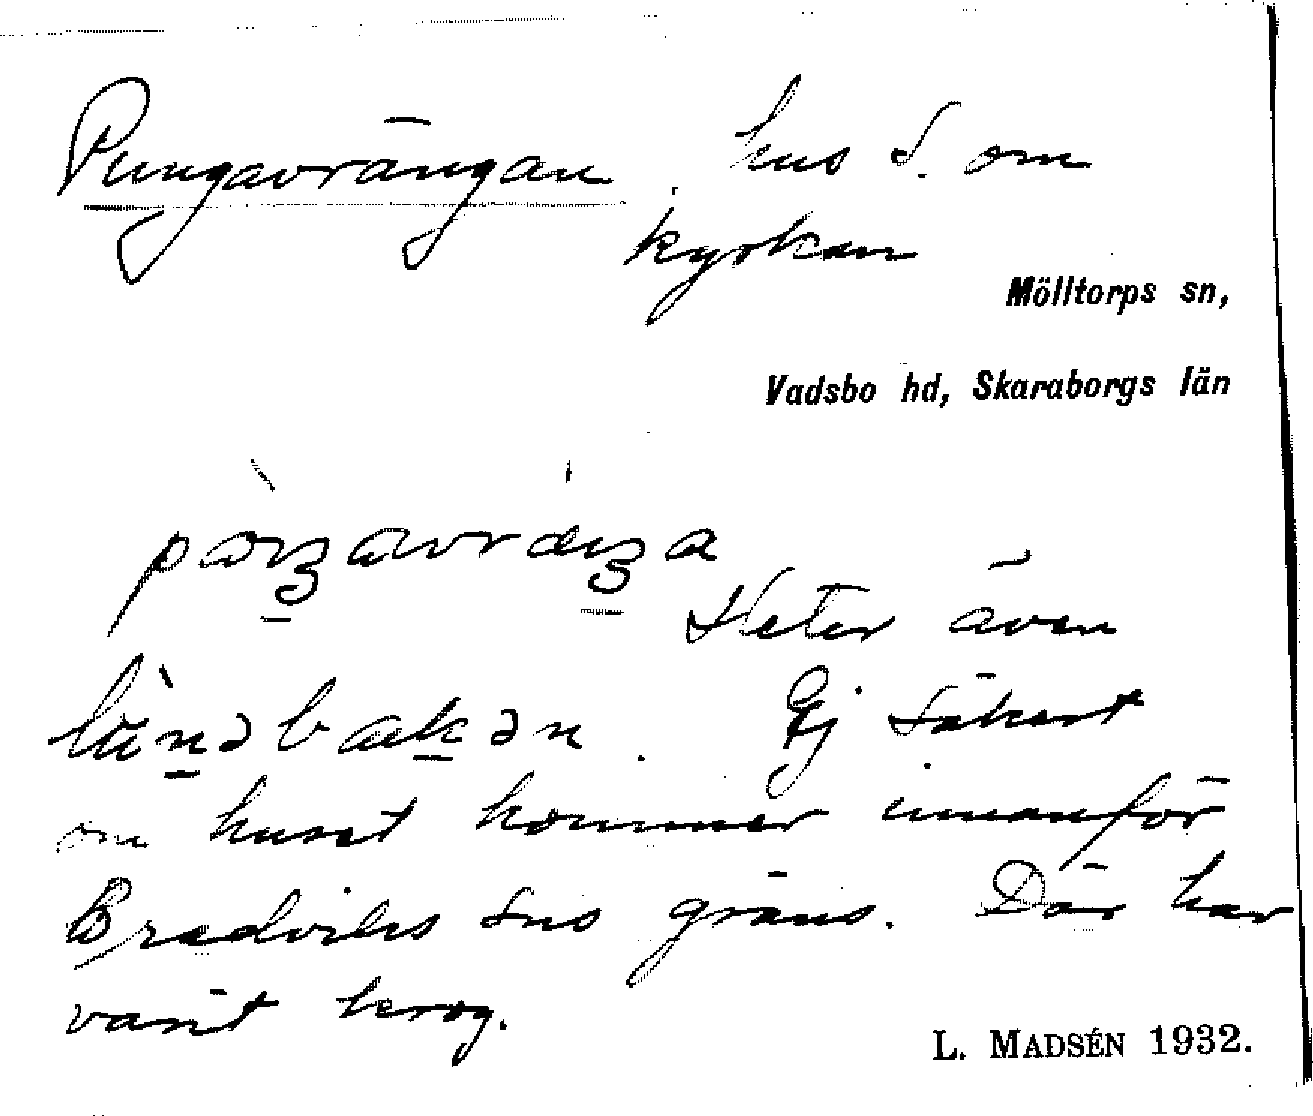 Pungavrängan, hus S. om
kyrkan
Mölltorps sn,
Vadsbo hd, Skaraborgs län
Heter även
Ej säkert
om huset kommer innanför
Bredviks sns gräns. Där har
varit krog.
L. MADSÉN 1932.